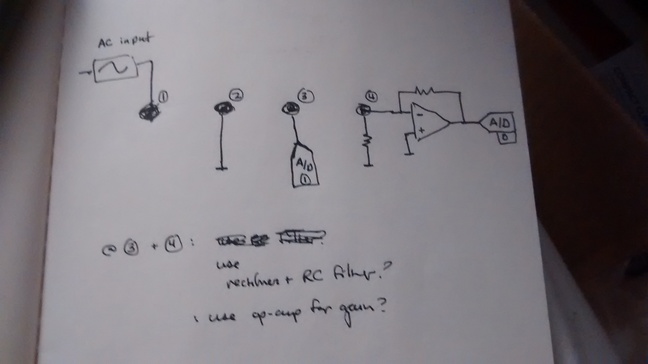 AC input
①
②
③
④
A/D
①
A/D
0
@ ③ + ④ :
use
rectifier + RC filter?
use op-amp for gain?